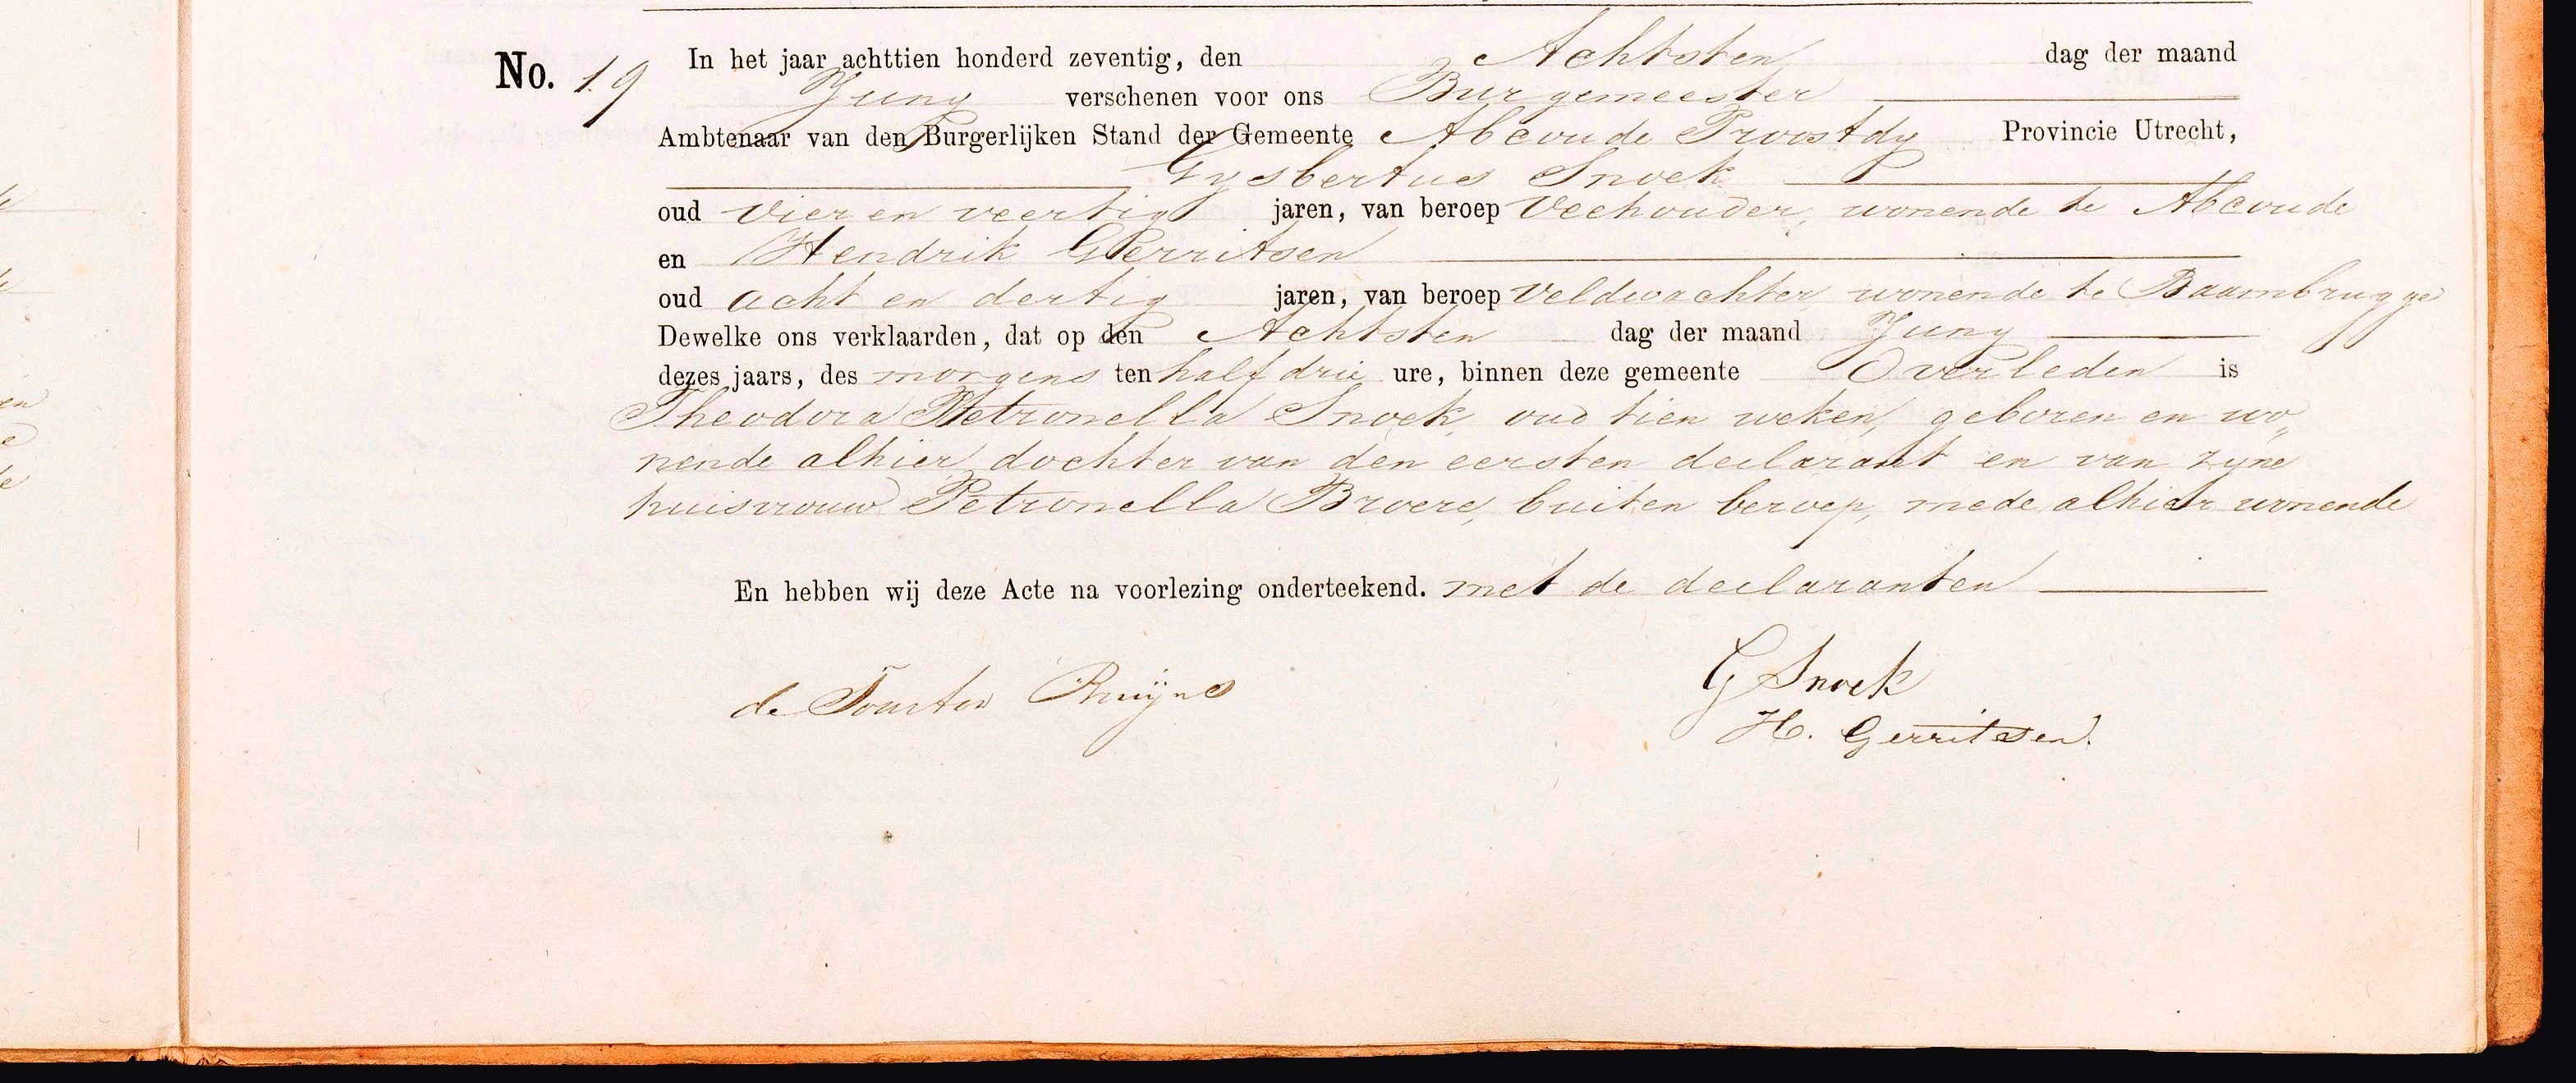 No. 19 In het jaar achttien honderd zeventig, den Achtsten dag der maand
Juny verschenen voor ons Burgemeester
Ambtenaar van den Burgerlijken Stand der Gemeente Abcoude Proostdy Provincie Utrecht,
Gysbertus Snoek
oud vier en veertig jaren, van beroep Veehouder, wonende te Abcoude
en Hendrik Gerritsen
oud acht en dertig jaren, van beroep Veldwachter, wonende te Baambrugge
Dewelke ons verklaarden, dat op den Achtsten dag der maand Juny
dezes jaars, des morgens ten half drie ure, binnen deze gemeente Overleden is
Theodora Petronella Snoek, oud tien weken, geboren en wo„
nende alhier, dochter van den eersten declarant en van zyne
huisvrouw Petronella Broere, buiten beroep, mede alhier wonende
En hebben wij deze Acte na voorlezing onderteekend. met de declaranten
de G Snoek
H. Gerritsen.